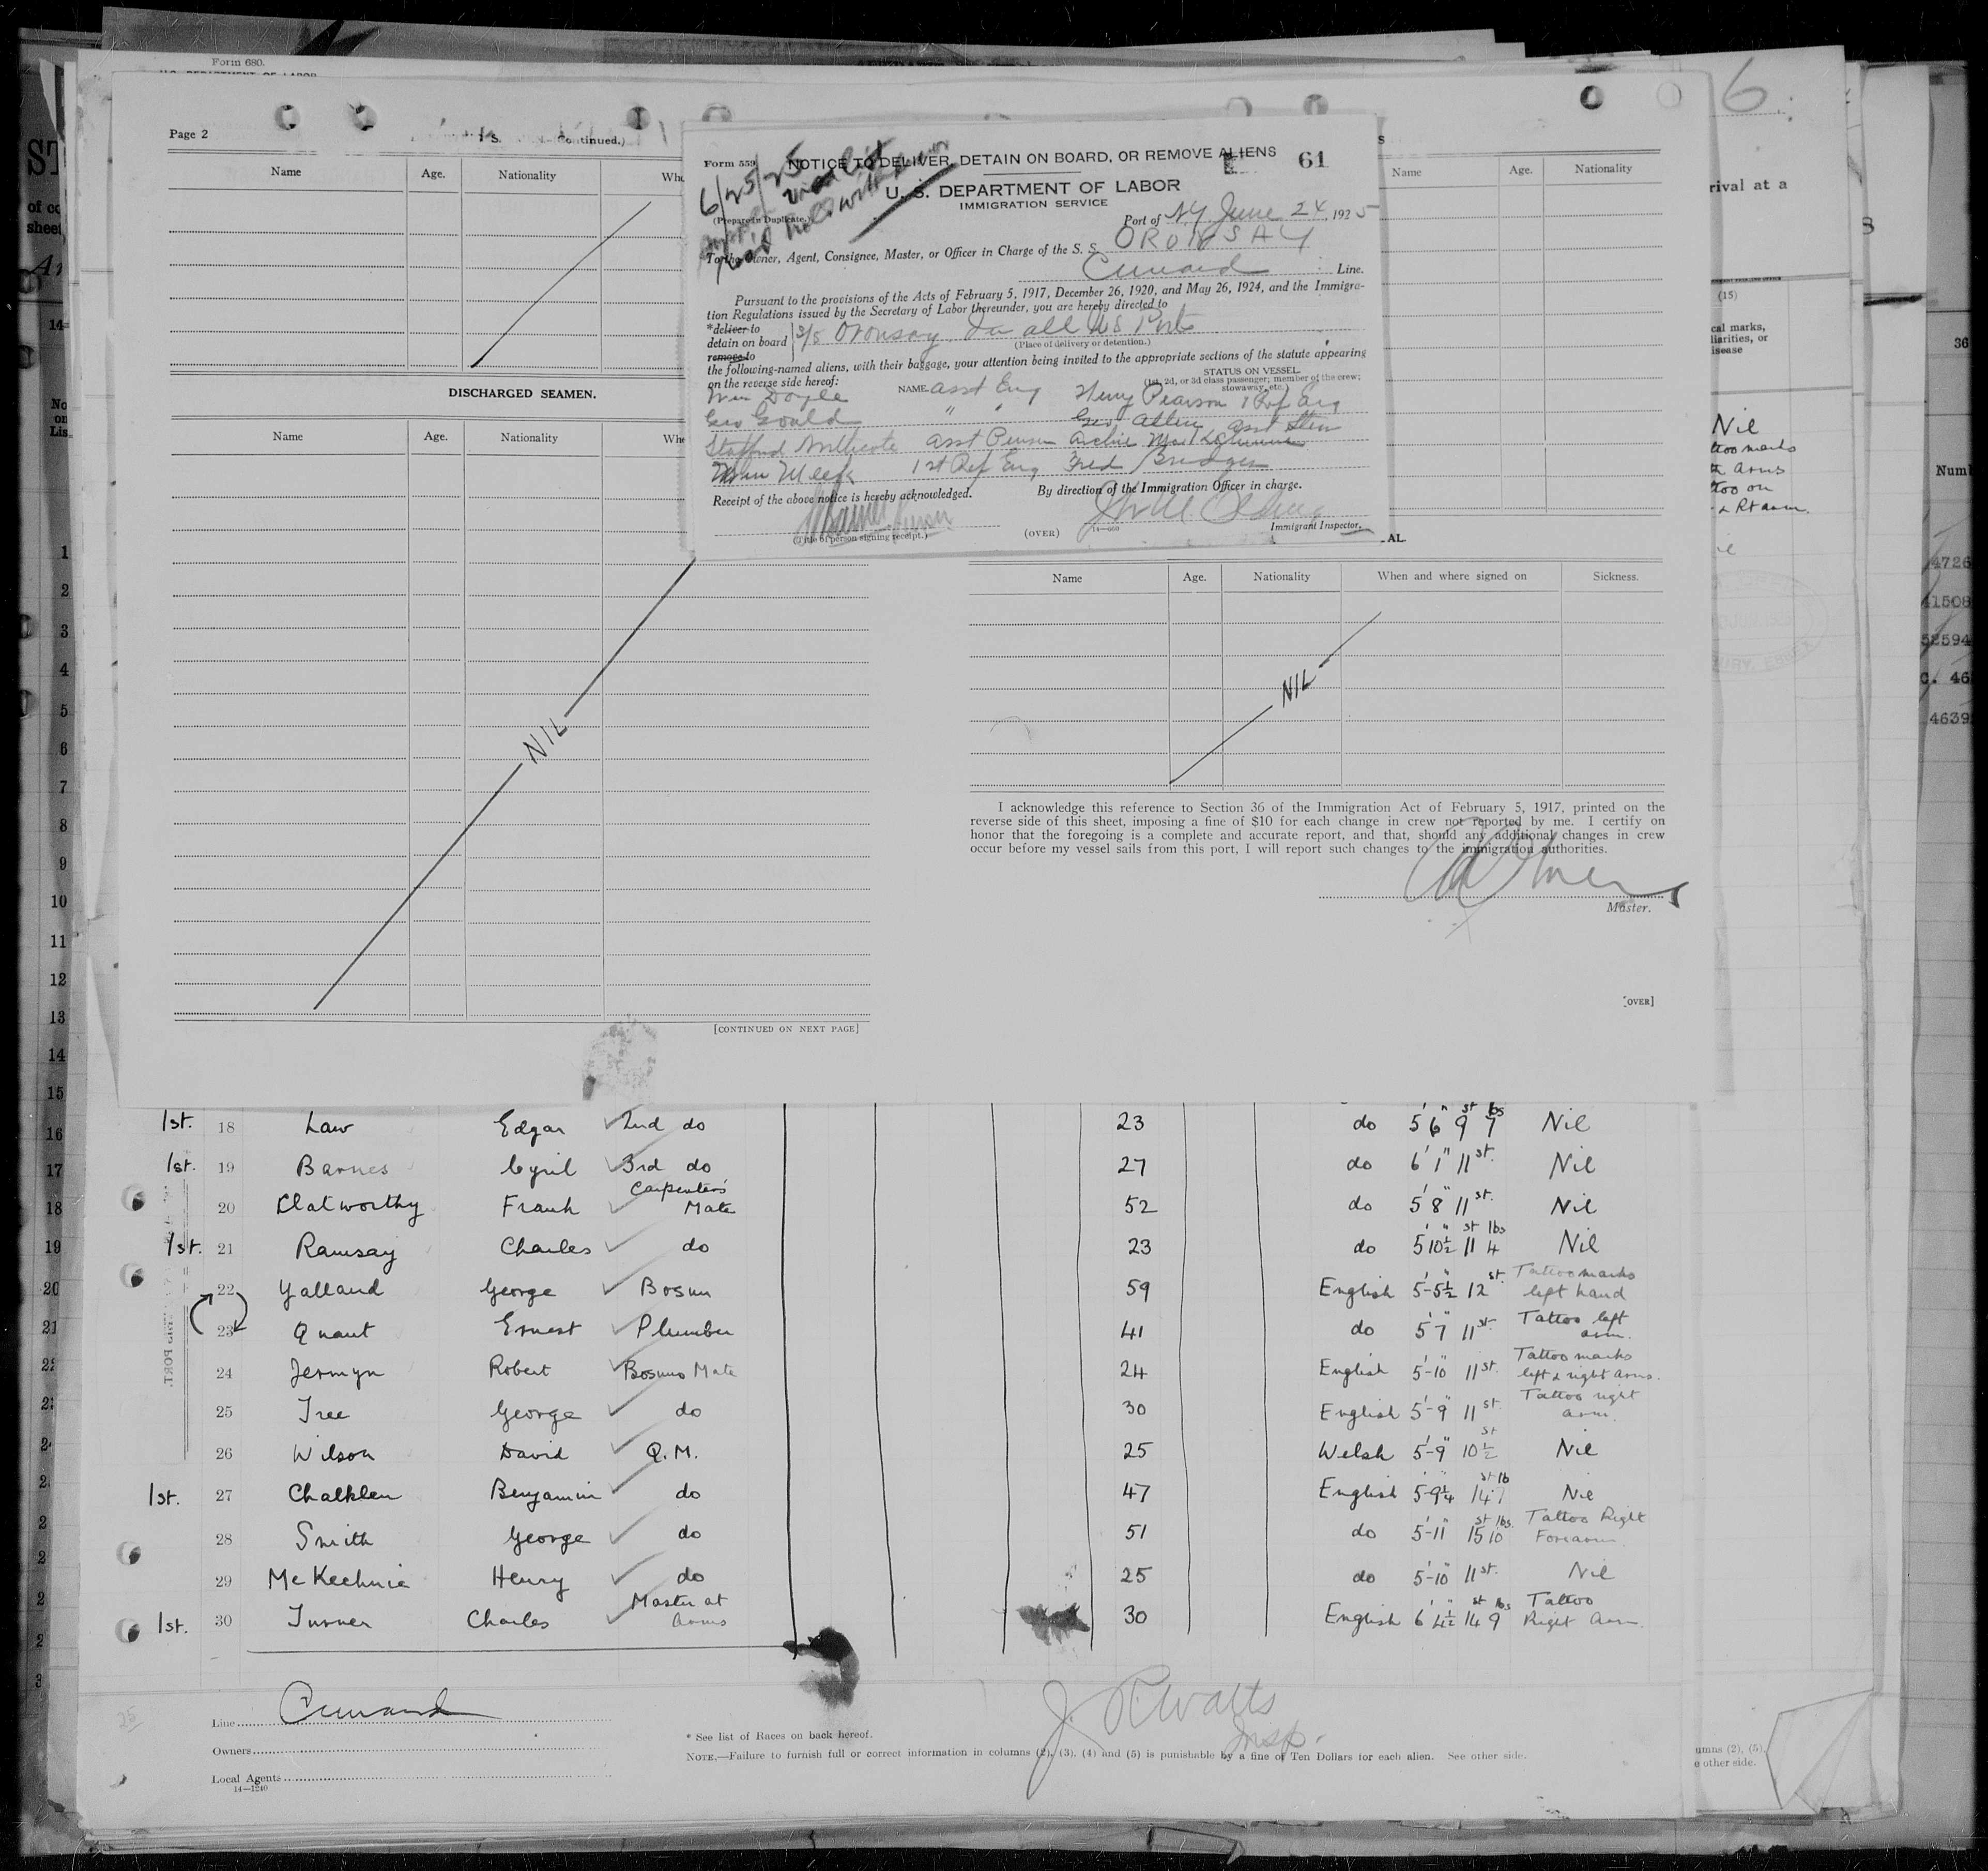 Form 680.
6
Page 2
Continued.)
Name Age. Nationality
DISCHARGED SEAMEN.
Name Age. Nationality
NIL
[CONTINUED ON NEXT PAGE]
Form 559
NOTICE TO DELIVER, DETAIN ON BOARD, OR REMOVE ALIENS
61
U. S. DEPARTMENT OF LABOR
IMMIGRATION SERVICE
6/25/25
(Prepare in Duplicate.)
Port of NY June 24, 1925
To the Owner, Agent, Consignee, Master, or Officer in Charge of the S. S. ORONSAY
Cunard Line.
Pursuant to the provisions of the Acts of February 5, 1917, December 26, 1920, and May 26, 1924, and the Immigra-
tion Regulations issued by the Secretary of Labor thereunder, you are hereby directed to
*deliver to
detain on board S/S Oronsay in all US Ports
remove to
(Place of delivery or detention.)
the following-named aliens, with their baggage, your attention being invited to the appropriate sections of the statute appearing
on the reverse side hereof:
STATUS ON VESSEL
(1st, 2d, or 3d class passenger; member of the crew;
stowaway, etc.)
NAME.
Wm Doyle asst Eng Henry Pearson 1 Ref Eng
Geo Gould " " Geo Allen asst Stew
Stafford asst Purser Archie
Meek 1st Ref Eng Fred Bridges
Receipt of the above notice is hereby acknowledged.
By direction of the Immigration Officer in charge.
(Title of person signing receipt.)
(OVER)
14—560
Immigrant Inspector.
Name Age. Nationality
Name Age. Nationality When and where signed on Sickness.
NIL
I acknowledge this reference to Section 36 of the Immigration Act of February 5, 1917, printed on the
reverse side of this sheet, imposing a fine of $10 for each change in crew not reported by me. I certify on
honor that the foregoing is a complete and accurate report, and that, should any additional changes in crew
occur before my vessel sails from this port, I will report such changes to the immigration authorities.
Master.
[OVER]
rival at a
(15)
cal marks,
liarities, or
isease
Nil
ttoo marks
arms
ttoo on
& Rt arm.
36
Num
4726
41508
52594
C. 46
4639
1
2
3
4
5
6
7
8
9
10
11
12
13
14
15
16
17
18
19
20
21
1st. 18 Law Edgar 2nd do 23 do 5' 6" 9 st 7 lbs Nil
1st. 19 Barnes Cyril 3rd do 27 do 6' 1" 11 st. Nil
20 Clatworthy Frank Carpenters Mate 52 do 5' 8" 11 st. Nil
1st. 21 Ramsay Charles do 23 do 5' 10½" 11 st 4 lbs Nil
22 Yalland George Bosun 59 English 5'-5½" 12 st. Tattoo marks left hand
23 Quant Ernest Plumber 41 do 5' 7" 11 st. Tattoo left arm.
24 Jermyn Robert Bosuns Mate 24 English 5'-10" 11 st. Tattoo marks left & right arms.
25 Tree George do 30 English 5'-9" 11 st. Tattoo right arm.
26 Wilson David Q.M. 25 Welsh 5'-9" 10½ st Nil
1st. 27 Chalklen Benjamin do 47 English 5'-9¼" 14 st 7 lb Nil
28 Smith George do 51 do 5'-11" 15 st 10 lbs. Tattoo Right Forearm.
29 McKechnie Henry do 25 do 5'-10" 11 st. Nil
1st. 30 Turner Charles Master at Arms 30 English 6' 4½" 14 st 9 lbs Tattoo Right Arm.
Line Cunard
Owners
Local Agents
14—1240
* See list of Races on back hereof.
J. R. Watts
Insp.
NOTE.—Failure to furnish full or correct information in columns (2), (3), (4) and (5) is punishable by a fine of Ten Dollars for each alien. See other side.
umns (2), (5),
e other side.